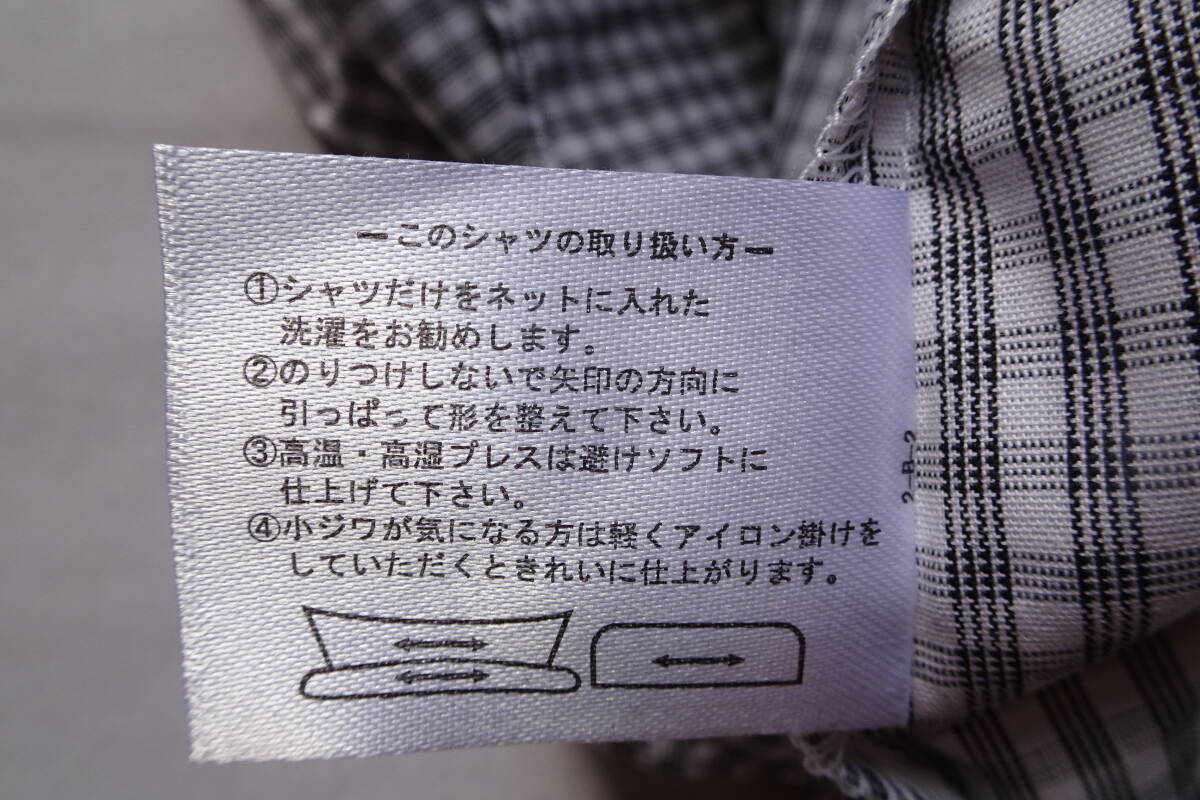 ーこのシャツの取り扱い方ー
①シャツだけをネットに入れた
洗濯をお勧めします。
②のりつけしないで矢印の方向に
引っぱって形を整えて下さい。
③高温・高湿プレスは避けソフトに
仕上げて下さい。
④小ジワが気になる方は軽くアイロン掛けを
していただくときれいに仕上がります。
2-B-2